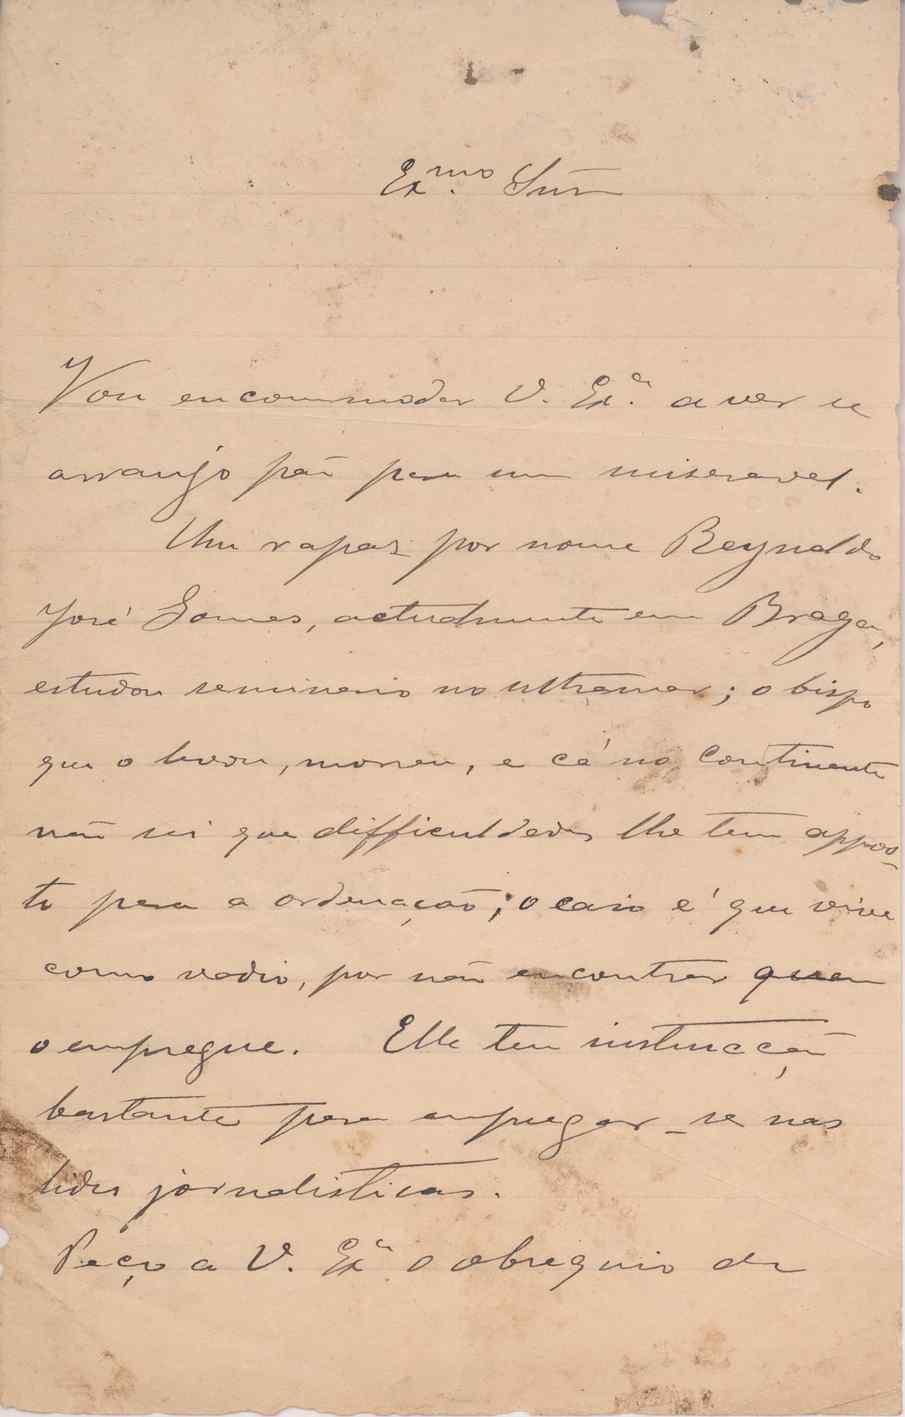 Ex.mo Snr
Vou encommodar V. Ex.ª a ver se
arranjo pão para um miseravel.
Um rapaz por nome Reynaldo
José Gomes, actualmente em Braga,
estudou seminario no ultramar; o bispo
que o levou, morreu, e cá no continente
não sei que difficuldades lhe tem appos-
to para a ordenação; o caso é que vive
como vadio, por não encontrar quem
o empregue. Elle tem instrucção
bastante para empregar-se nas
lides jornalisticas.
Peço a V. Ex.ª o obsequio de